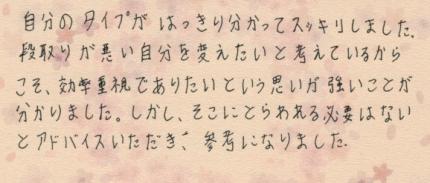 自分のタイプが はっきり分かってスッキリしました.
段取りが悪い自分を変えたいと考えているから
こそ、効率重視でありたいという思いが強いことが
分かりました。しかし、そこにとらわれる必要はない
とアドバイスいただき、参考になりました.